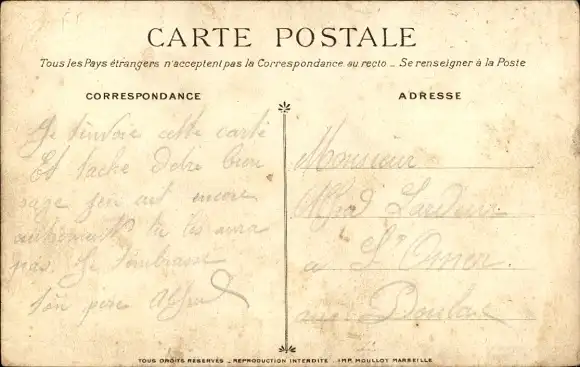 CARTE POSTALE
Tous les Pays étrangers n'acceptent pas la Correspondance au recto _ Se renseigner à la Poste
CORRESPONDANCE
Je t'envoie cette carte
Et tache detre bien
sage jen ait encore
autrement tu les aura
pas. Je t'embrasse
ton père Alfred
ADRESSE
Monsieur
Alfred
a St Omer
TOUS DROITS RÉSERVÉS _ REPRODUCTION INTERDITE _ IMP. MOULLOT MARSEILLE